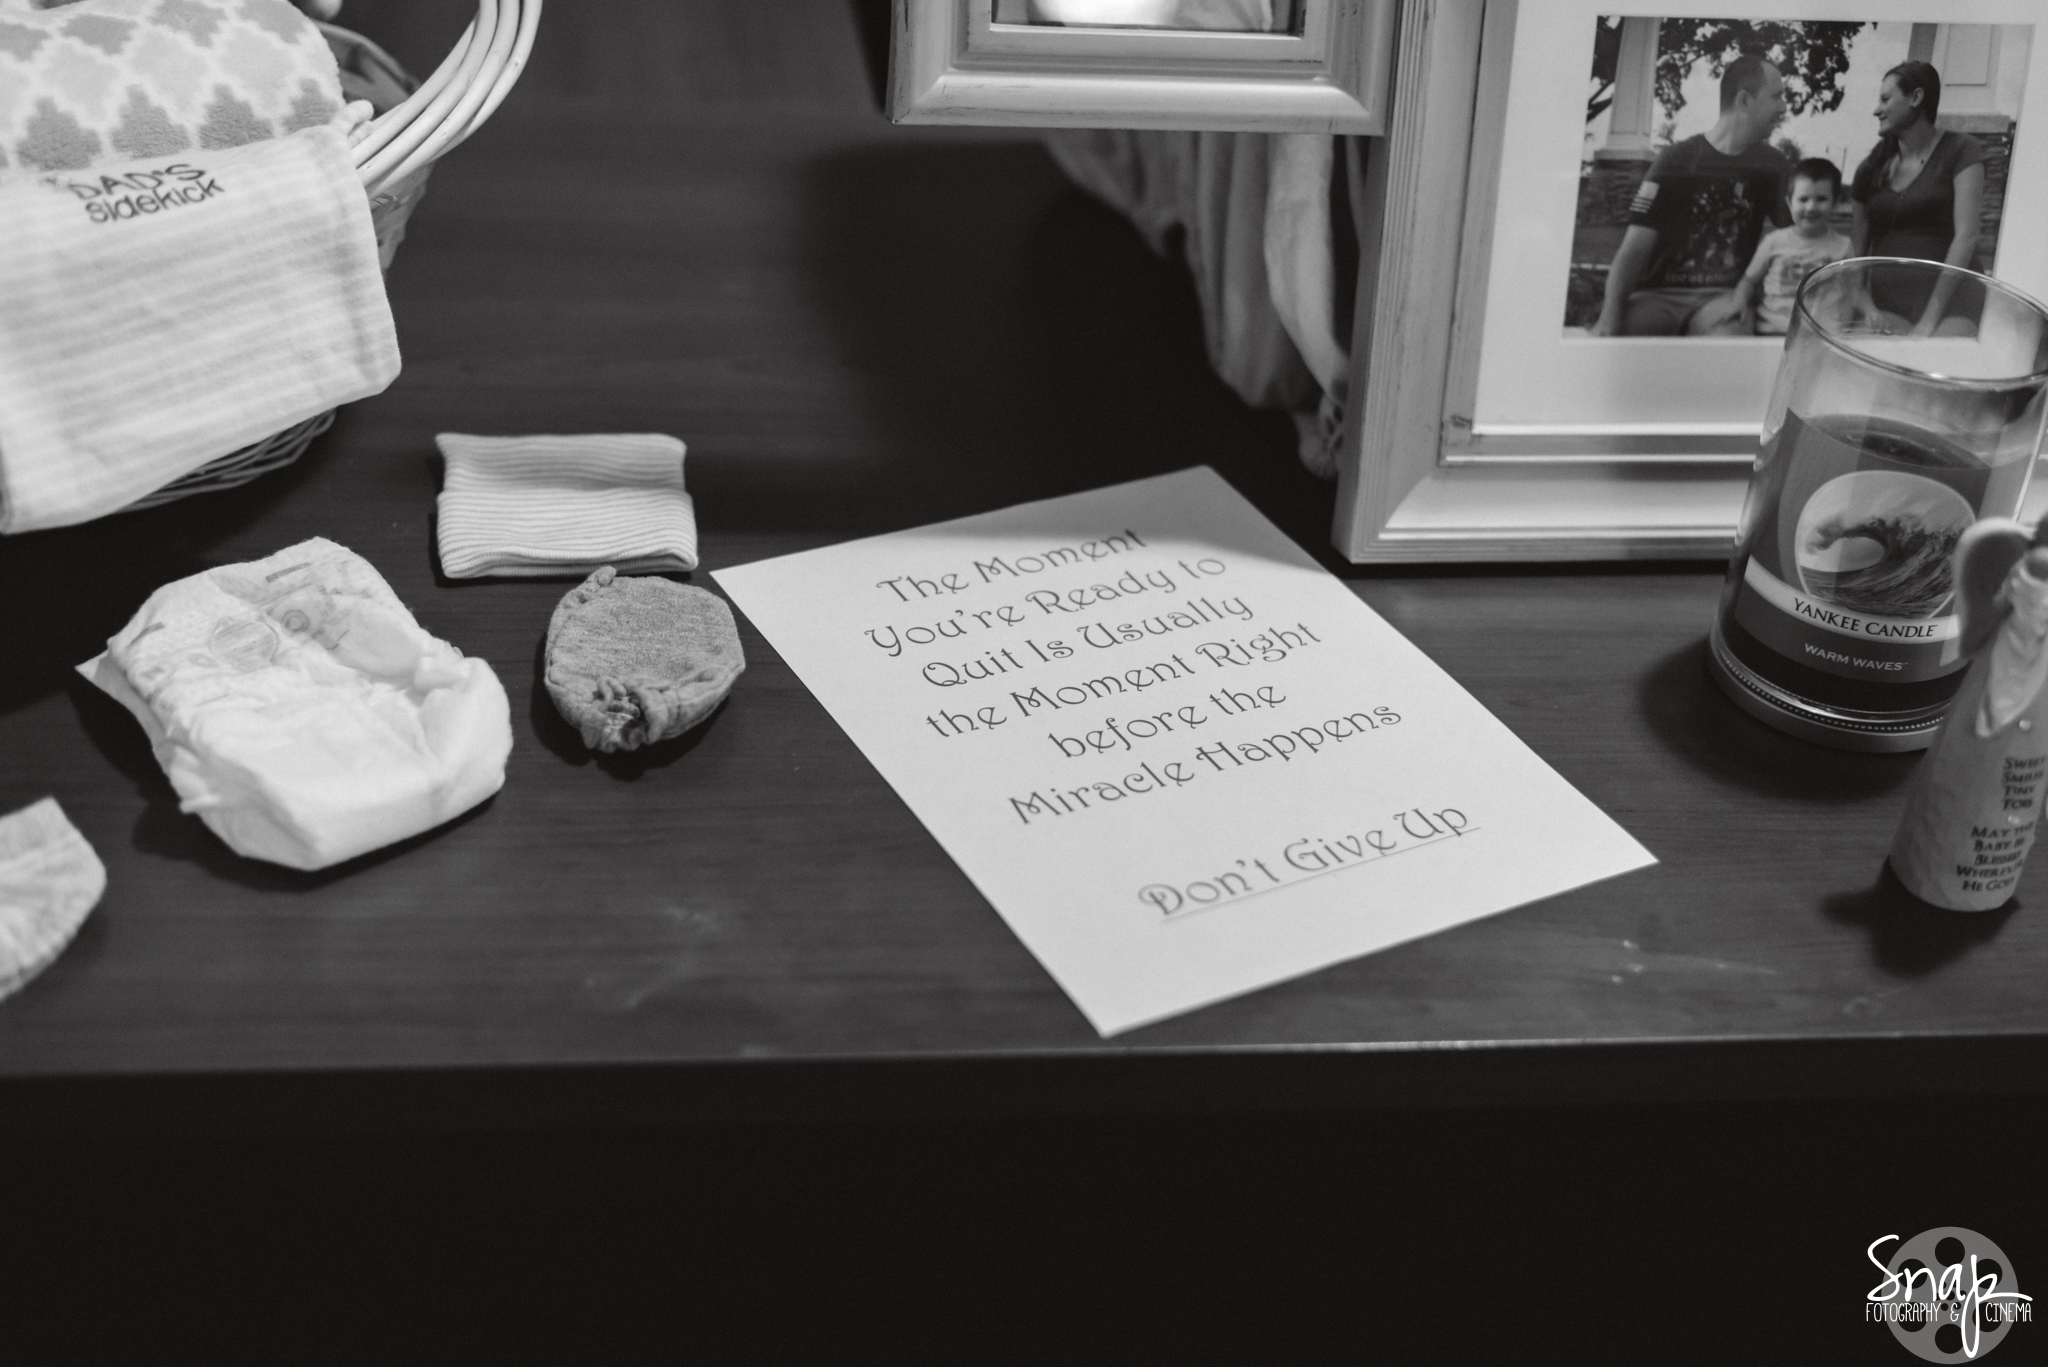 DAD'S
sidekick
The Moment
You're Ready to
Quit Is Usually
the Moment Right
before the
Miracle Happens
Don't Give Up
YANKEE CANDLE
WARM WAVES™
SWEET
SMILES
TINY
TOES
MAY THE
BABY BE
BLESSED
WHEREVER
HE GOES
Snap
FOTOGRAPHY & CINEMA